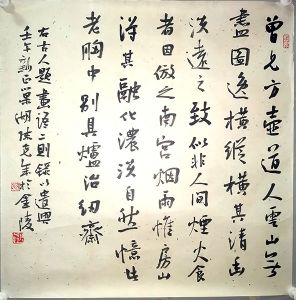 曾见方壶道人云山无
尽图逸横纵横其清幽
淡远之致似非人间烟火食
者因仿之南宫烟雨惟房山
得其融化浓淡自然一憶生
老胸中别具炉冶切斋
右古人题画语二则录以遣兴
壬午新正巢湖张克年于金陵